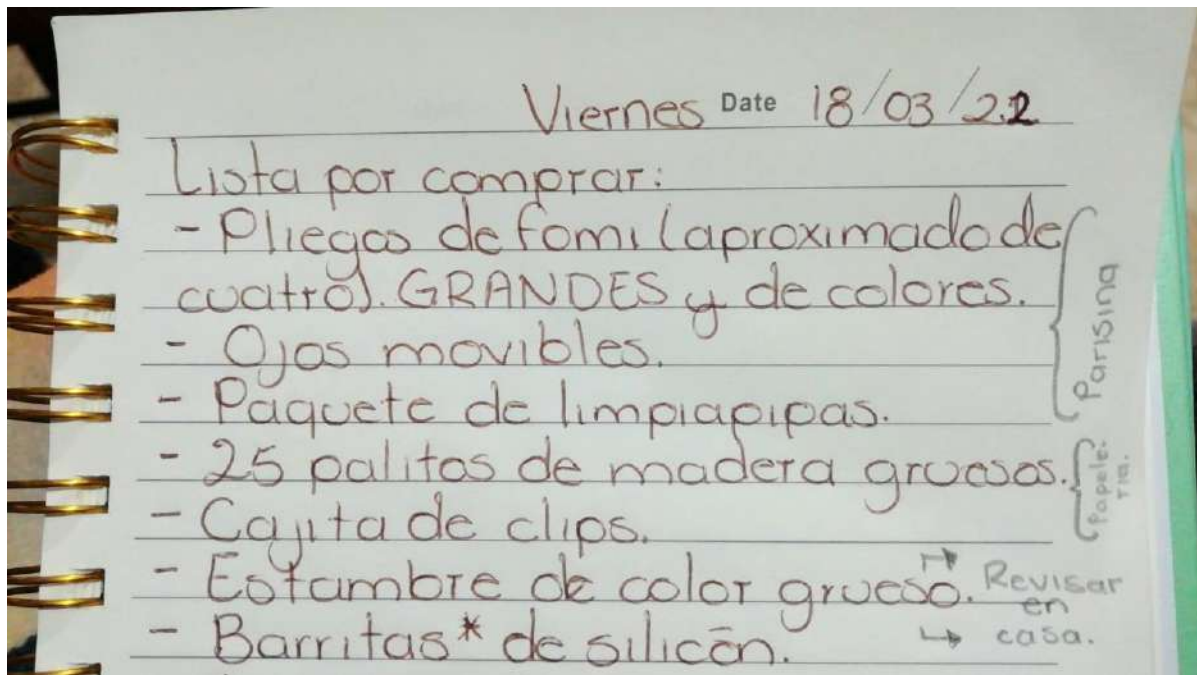 Viernes Date 18/03/22
Lista por comprar:
- Pliegos de fomi (aproximado de
cuatro). GRANDES y de colores.
- Ojos movibles.
- Paquete de limpiapipas.
Parisina
- 25 palitos de madera gruesos.
- Cajita de clips.
Papele-
ria.
- Estambre de color grueso.
- Barritas* de silicón.
Revisar
en
casa.